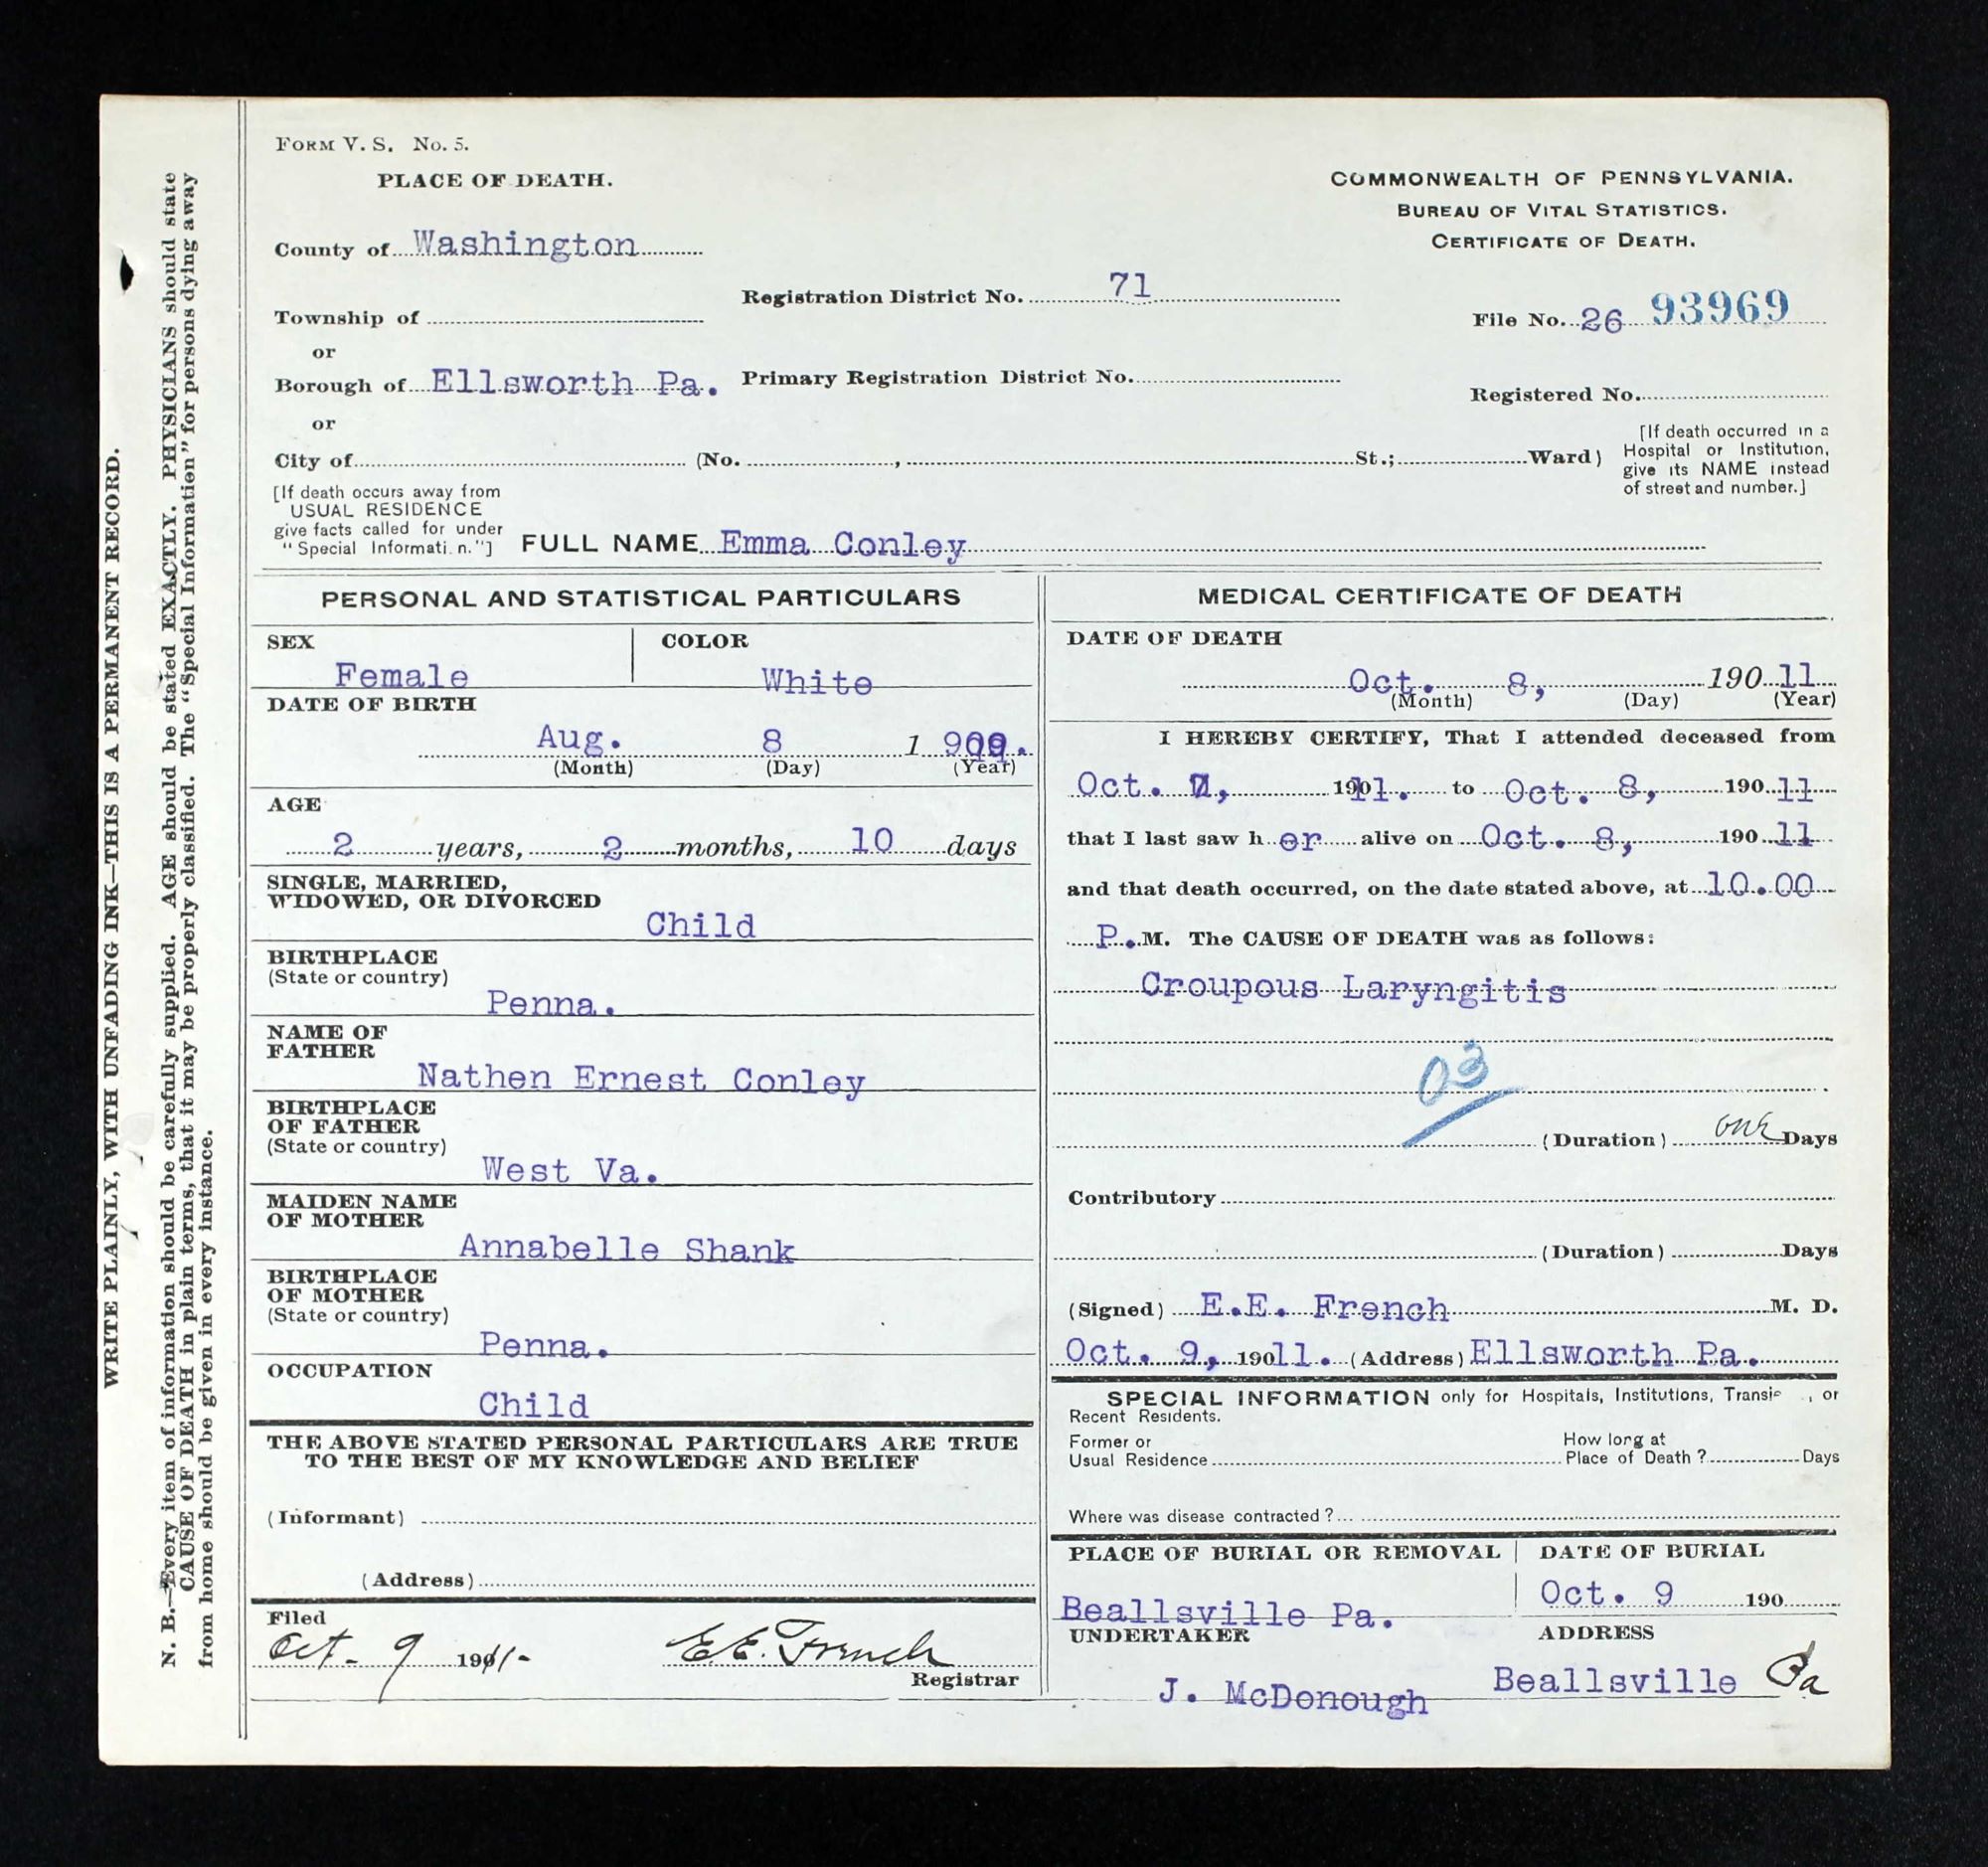 WRITE PLAINLY, WITH UNFADING INK—THIS IS A PERMANENT RECORD.
N. B.—Every item of information should be carefully supplied. AGE should be stated EXACTLY. PHYSICIANS should state
CAUSE OF DEATH in plain terms, that it may be properly classified. The "Special Information" for persons dying away
from home should be given in every instance.
FORM V. S. No. 5.
PLACE OF DEATH.
COMMONWEALTH OF PENNSYLVANIA.
BUREAU OF VITAL STATISTICS.
CERTIFICATE OF DEATH.
County of Washington
Registration District No. 71
Township of
File No. 26 93969
or
Borough of Ellsworth Pa. Primary Registration District No.
Registered No.
or
City of (No. , St.; Ward)
[If death occurred in a
Hospital or Institution,
give its NAME instead
of street and number.]
[If death occurs away from
USUAL RESIDENCE
give facts called for under
"Special Informati n."]
FULL NAME Emma Conley
PERSONAL AND STATISTICAL PARTICULARS
SEX COLOR
Female White
DATE OF BIRTH
Aug. 8 1 909.
(Month) (Day) (Year)
AGE
2 years, 2 months, 10 days
SINGLE, MARRIED,
WIDOWED, OR DIVORCED
Child
BIRTHPLACE
(State or country)
Penna.
NAME OF
FATHER
Nathen Ernest Conley
BIRTHPLACE
OF FATHER
(State or country)
West Va.
MAIDEN NAME
OF MOTHER
Annabelle Shank
BIRTHPLACE
OF MOTHER
(State or country)
Penna.
OCCUPATION
Child
THE ABOVE STATED PERSONAL PARTICULARS ARE TRUE
TO THE BEST OF MY KNOWLEDGE AND BELIEF
(Informant)
(Address)
Filed
Oct. 9 1911. E E. French
Registrar
MEDICAL CERTIFICATE OF DEATH
DATE OF DEATH
Oct. 8, 190 11
(Month) (Day) (Year)
I HEREBY CERTIFY, That I attended deceased from
Oct. , 1911. to Oct. 8, 190 11
that I last saw h er alive on Oct. 8, 190 11
and that death occurred, on the date stated above, at 10.00
P. M. The CAUSE OF DEATH was as follows:
Croupous Laryngitis
03
(Duration) one Days
Contributory
(Duration) Days
(Signed) E.E. French M. D.
Oct. 9, 190 11. (Address) Ellsworth Pa.
SPECIAL INFORMATION only for Hospitals, Institutions, Transie , or
Recent Residents.
Former or
Usual Residence
How long at
Place of Death? Days
Where was disease contracted?
PLACE OF BURIAL OR REMOVAL DATE OF BURIAL
Beallsville Pa. Oct. 9 190
UNDERTAKER ADDRESS
J. McDonough Beallsville Pa